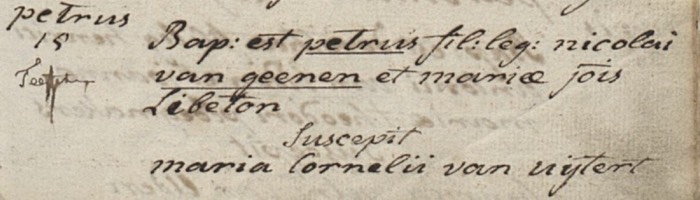 petrus
18
Bap: est petrus fil: leg: nicolai
van geenen et mariæ jois
Libeton
Suscepit
maria Cornelii van uijtert